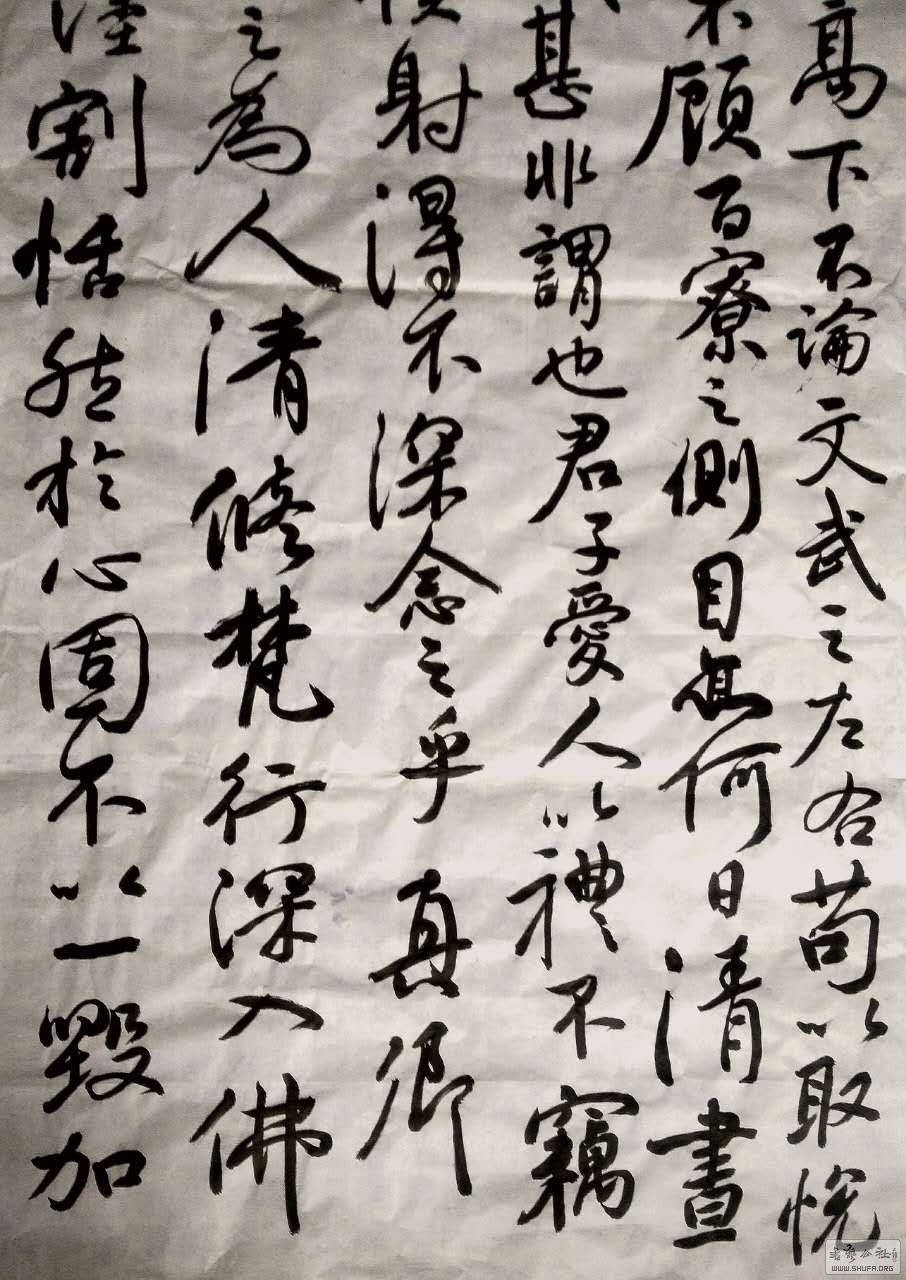 高下不論文武之左右苟以取悅
不顧百寮之側目無何日清晝
甚非謂也君子愛人以禮不竊
射得不深念之乎真卿
之為人清修梵行深入佛
割恬然於心固不以一毀加
WWW.SHUFA.ORG